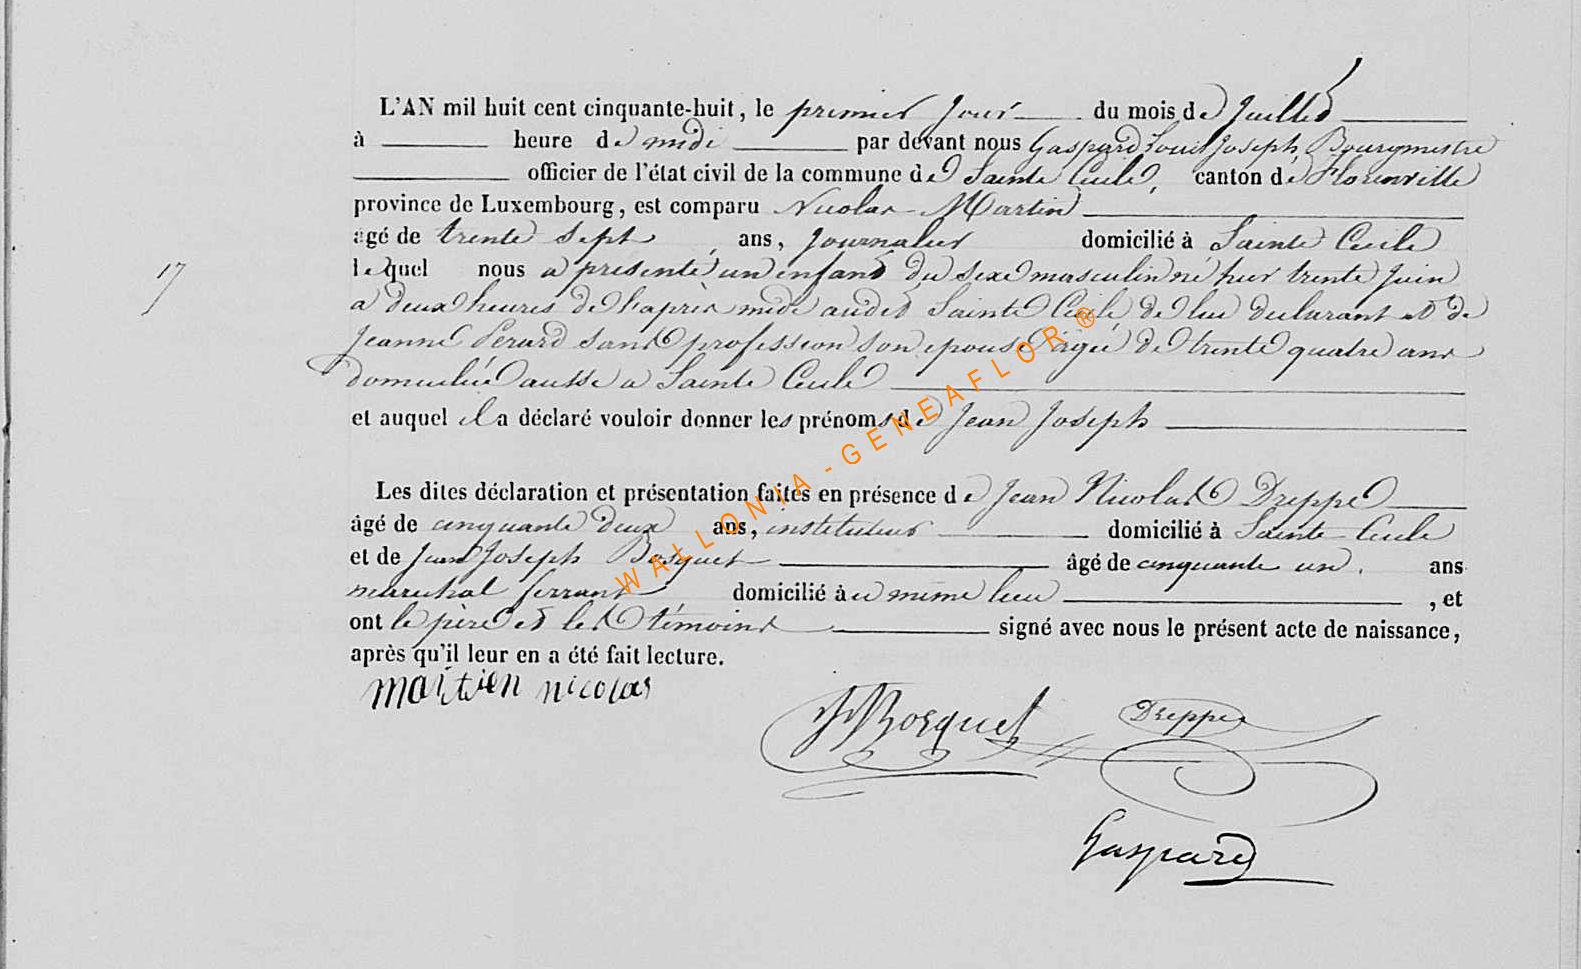 L'AN mil huit cent cinquante-huit, le premier jour du mois de Juillet
à heure de midi par devant nous Gaspard Louis Joseph, Bourgmestre
officier de l'état civil de la commune de Sainte Cecile, canton de Florenville
province de Luxembourg, est comparu Nicolas Martin
âgé de trente sept ans, journalier domicilié à Sainte Cecile
17
lequel nous a présenté un enfant du sexe masculin né hier trente Juin
a deux heures de l'après midi audit Sainte Cecile, de lui declarant et de
Jeanne Perard sans profession son epouse agée de trente quatre ans
domiciliée aussi a Sainte Cecile
et auquel il a déclaré vouloir donner les prénoms de Jean Joseph
Les dites déclaration et présentation faites en présence de Jean Nicolas Dreppe
âgé de cinquante deux ans, instituteur domicilié à Sainte Cecile
et de Jean Joseph Bosquet âgé de cinquante un. ans
marechal ferrant domicilié à même lieu, et
ont le père et les témoins signé avec nous le présent acte de naissance,
après qu'il leur en a été fait lecture.
martien nicolas
JJBosquet Dreppe
Gaspard
WALLONIA-GENEAFLOR®